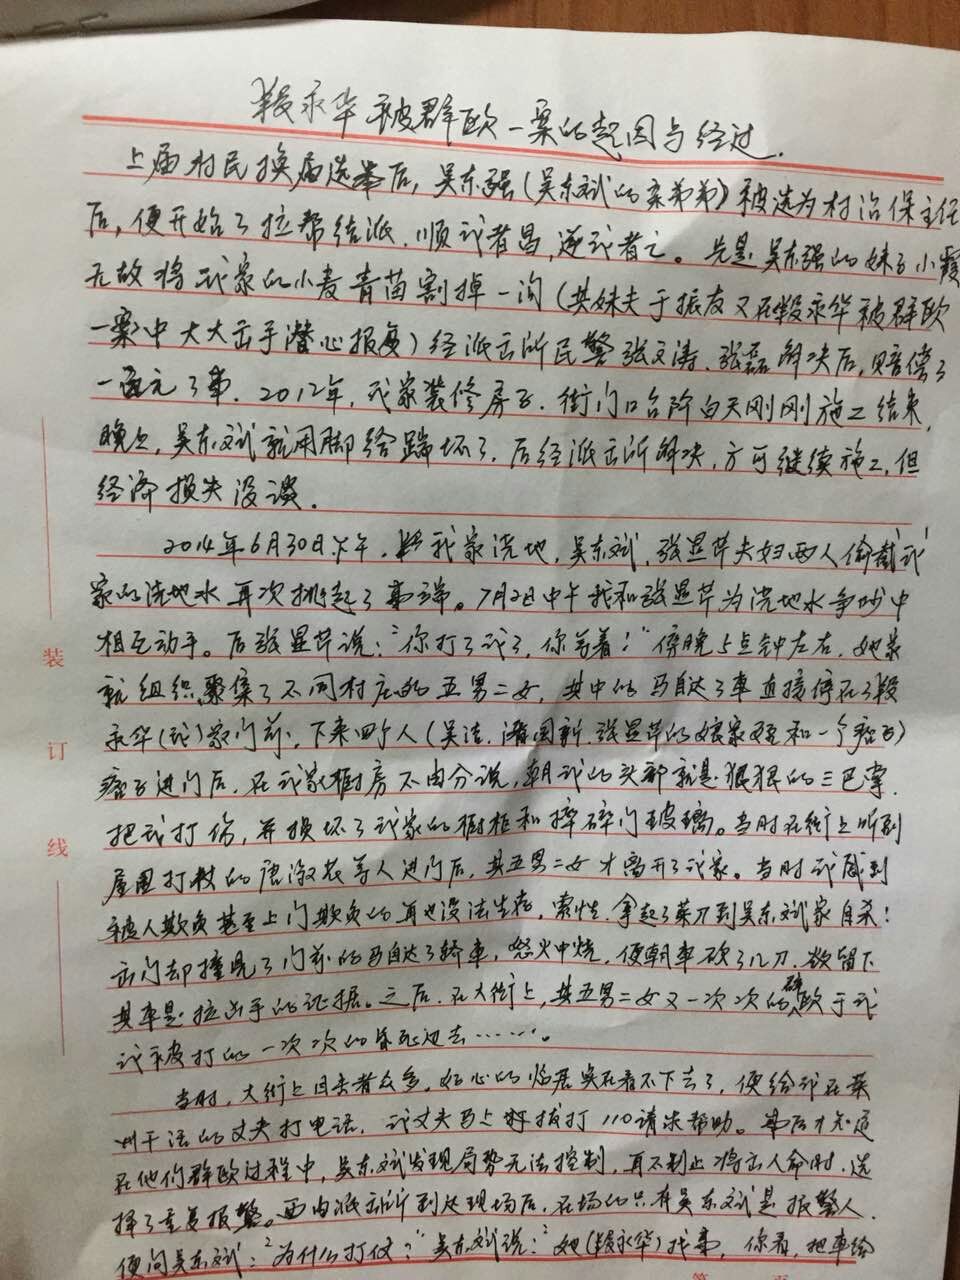 段永华被群欧一案的起因与经过.
上届村民换届选举后，吴东强（吴东斌的亲弟弟）被选为村治保主任
后，便开始了拉帮结派.顺我者昌，逆我者亡。先是吴东强的妹子小霞
无故将我家的小麦青苗割掉一沟（其妹夫于振友又在段永华被群欧
一案中大大出手潜心报复）经派出所民警张文涛、张磊解决后，赔偿了
一百元了事.2012年，我家装修房子.街门口台阶白天刚刚施工结束，
晚上，吴东斌就用脚给踹坏了，后经派出所解决，方可继续施工，但
经济损失没谈.
2014年6月30日下午，我家浇地，吴东斌、张显芹夫妇两人偷截我
家的浇地水再次挑起了事端。7月2日中午我和张显芹为浇地水争吵中
相互动手。后张显芹说："你打了我了，你等着！"傍晚5点钟左右，她家
就组织聚集了不同村庄的五男二女，其中的马自达3车直接停在了段
永华（我）家门前，下来四个人（吴洁、潘国新、张显芹的娘家侄和一个瘸子）
瘸子进门后，在我家橱房不由分说，朝我的头部就是狠狠的三巴掌，
把我打伤，并损坏了我家的橱柜和摔碎门玻璃。当时在街上听到
屋里打杖的唐淑花等人进门后，其五男二女才离开了我家。当时我感到
被人欺负甚至上门欺负的再也没法生存，索性，拿起了菜刀到吴东斌家自杀！
出门却撞见了门前的马自达3轿车，怒火中烧，便朝车砍了几刀，欲留下
其车是拉凶手的证据。之后，在大街上，其五男二女又一次次的群欧于我
我被打的一次次的昏死过去……。
当时，大街上目击者众多，好心的临居实在看不下去了，便给我在莱
州干活的丈夫打电话，我丈夫马上拔打110请求帮助。事后才知道
在他们群欧过程中，吴东斌发现局势无法控制，再不制止将出人命时，选
择了重复报警。西由派出所到达现场后，在场的只有吴东斌是报警人，
便问吴东斌："为什么打仗？"吴东斌说："她（段永华）找事，你看，把车给
装
订
线
第 页